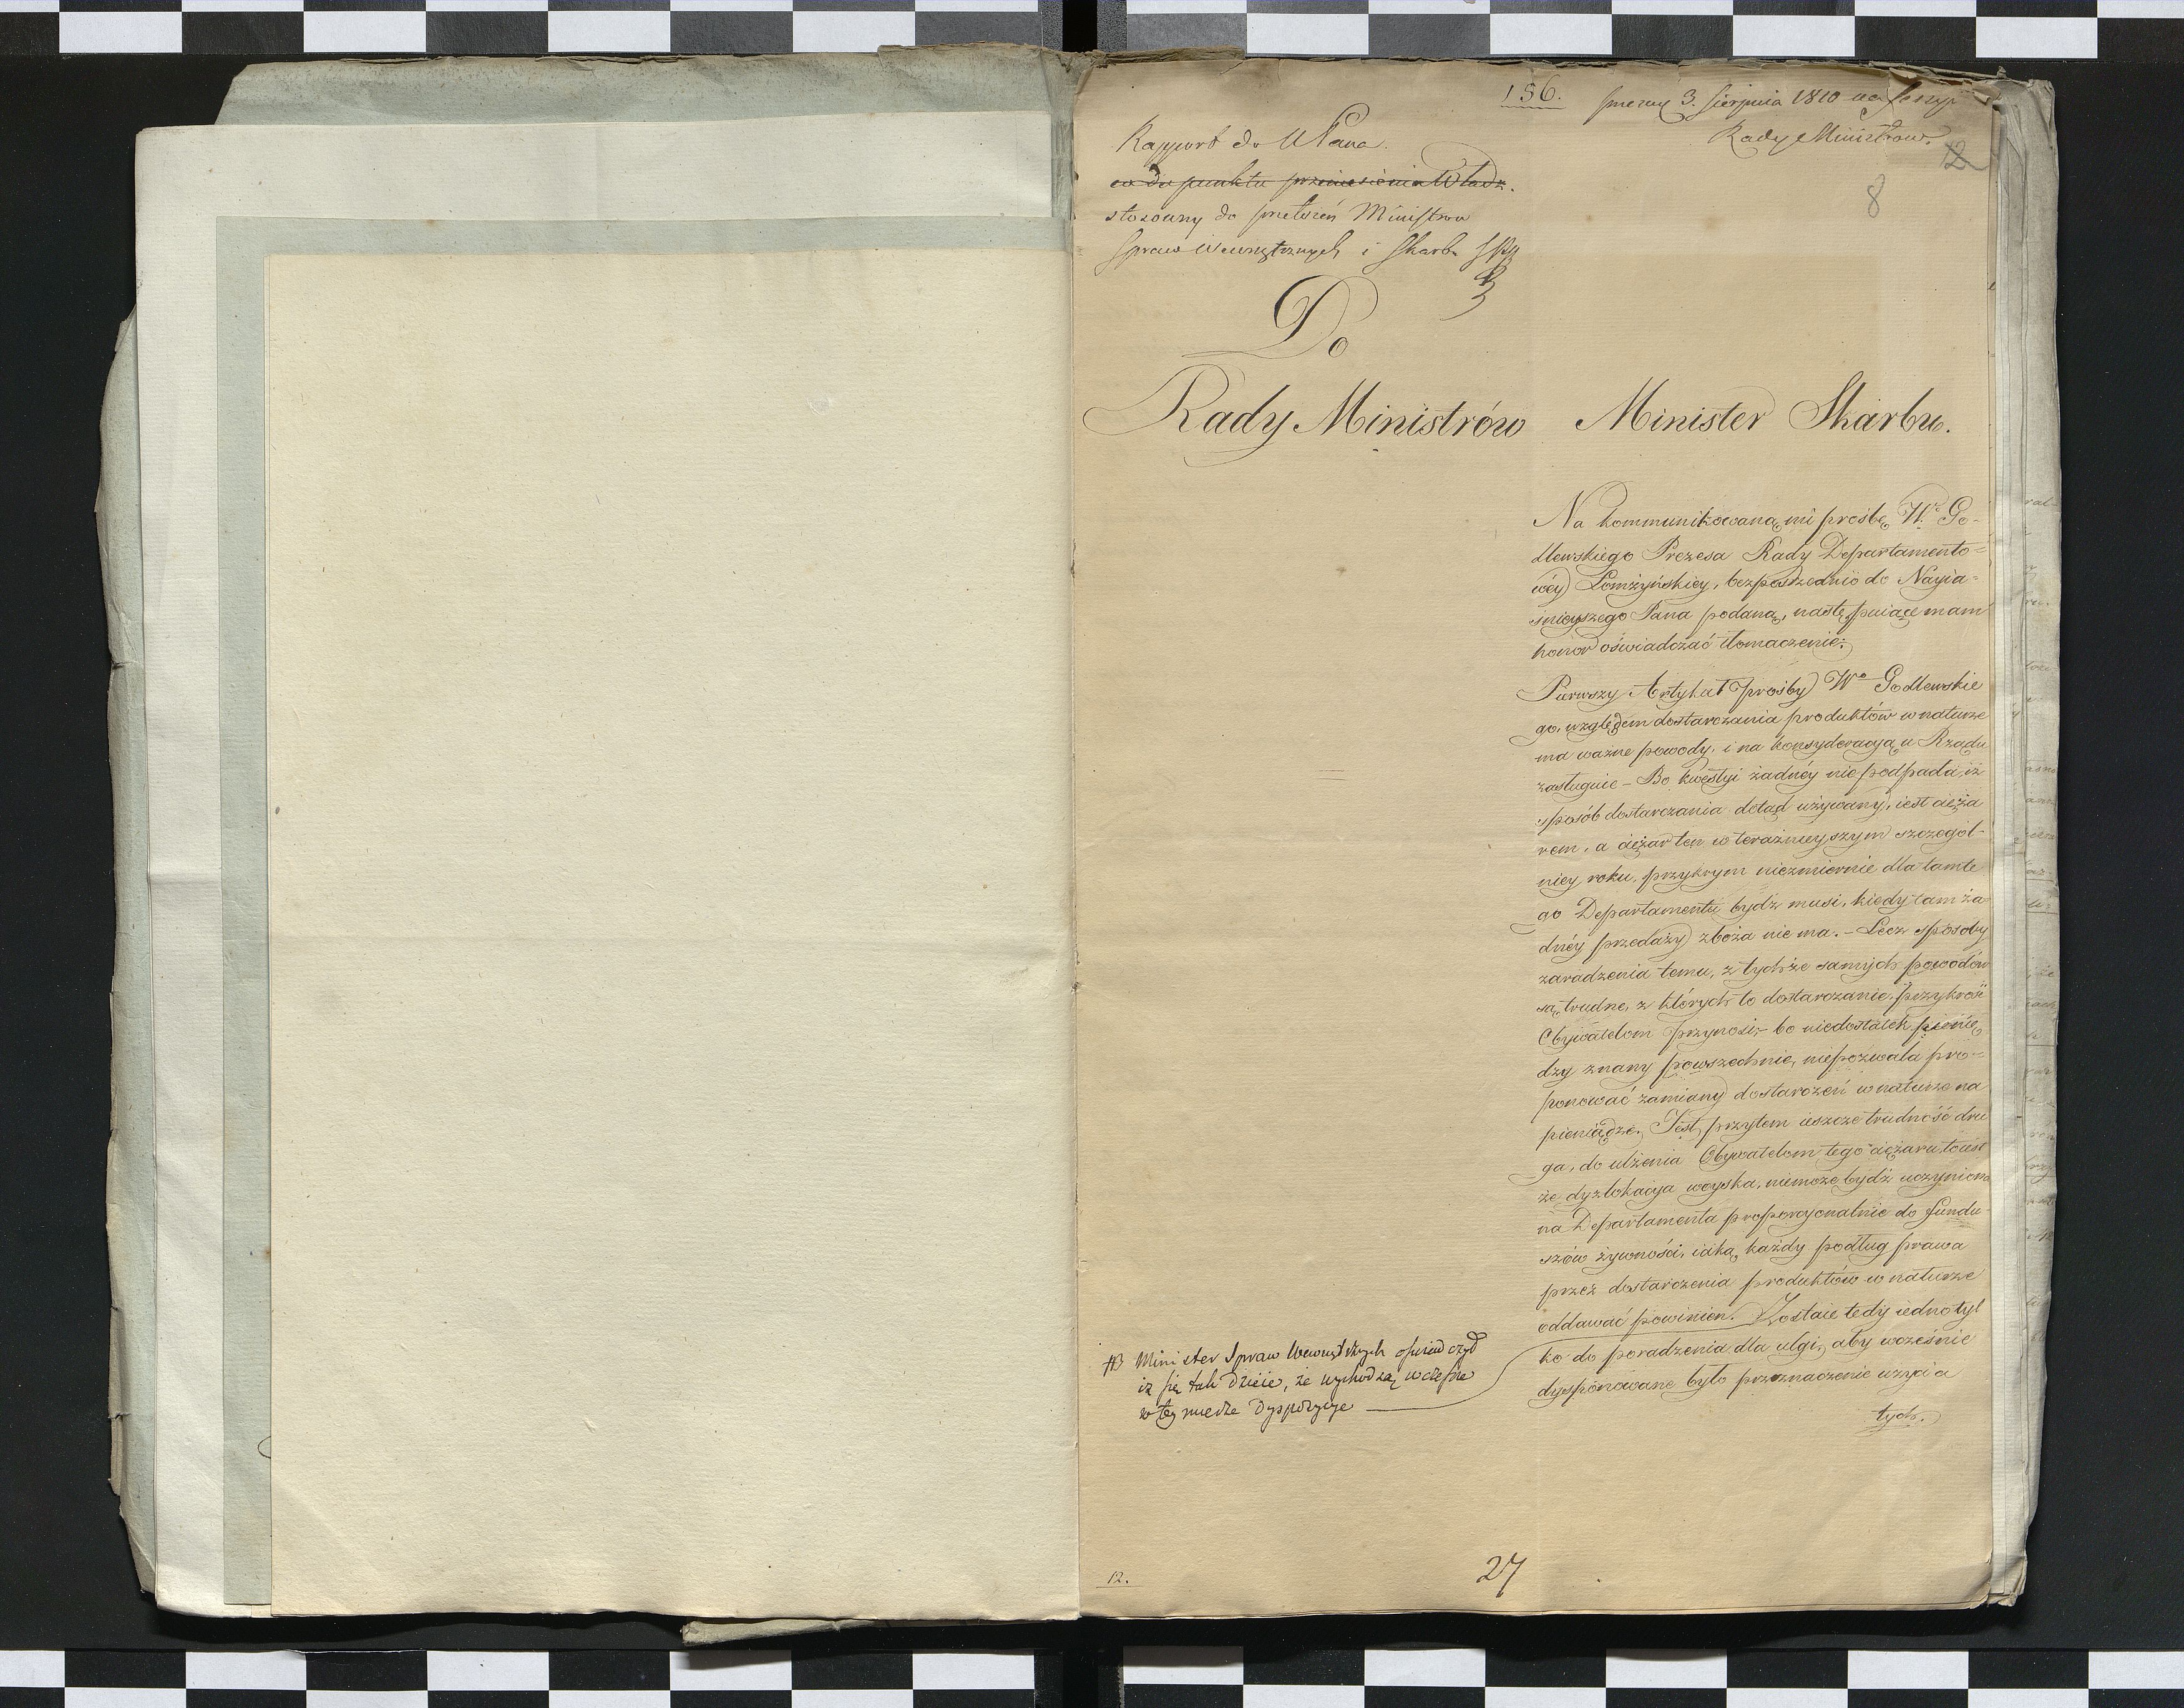 156.
3. Sierpnia 1810 na Sessyi
Rady Ministrów.
12
8
Rapport do NPana.
co do punktu przeniesienia Władz.
stosowny do przełożeń Ministrów
Spraw Wewnętrznych i Skarbu
Do
Rady Ministrów
Minister Skarbu.
Na kommunikowaną mi prośbę Wo Go-
dlewskiego Prezesa Rady Departamento=
wéy Łomżyńskiey, bezpośrzednio do Nayia=
śnieyszego Pana podaną, następuiące mam
honor oświadczać tłomaczenie:
Pierwszy Artykuł prośby Wo Godlewskie
go, względem dostarczania produktów w naturze
ma ważne powody, i na konsyderacyą u Rządu
zasługuie – Bo kwestyi żadnéy nie podpada, iż
sposób dostarczania dotąd używany, iest cięża
rem, a ciężar ten w teraźnieyszym szczegól-
niey roku, przykrym niezmiernie dla tamte
go Departamentu bydź musi, kiedy tam ża
dnéy przedaży zboża nie ma. – Lecz sposoby
zaradzenia temu, z tychże samych powodów
są trudne, z których to dostarczanie, przykrość
Obywatelom przynosi, – bo niedostatek pienię
dzy znany powszechnie, niepozwala pro=
ponować zamiany dostarczeń w naturze na
pieniądze. Jest przytem ieszcze trudność dru
ga, do ulżenia Obywatelom tego ciężaru, to iest
że dyzlokacya woyska, niemoże bydź uczyniona
na Departamenta proporcyonalnie do fundu-
szów żywności, iaką każdy podług prawa
przez dostarczenia produktów w naturze
oddawać powinien. Zostaie tedy iedno tyl
ko do poradzenia dla ulgi, aby wcześnie
dysponowane było przeznaczenie użycia
tych.
Minister Spraw Wewnętrznych oświadczył
iż się tak dzieie, że wychodzą wcześne
w tey mierze dyspozycye
12.
27